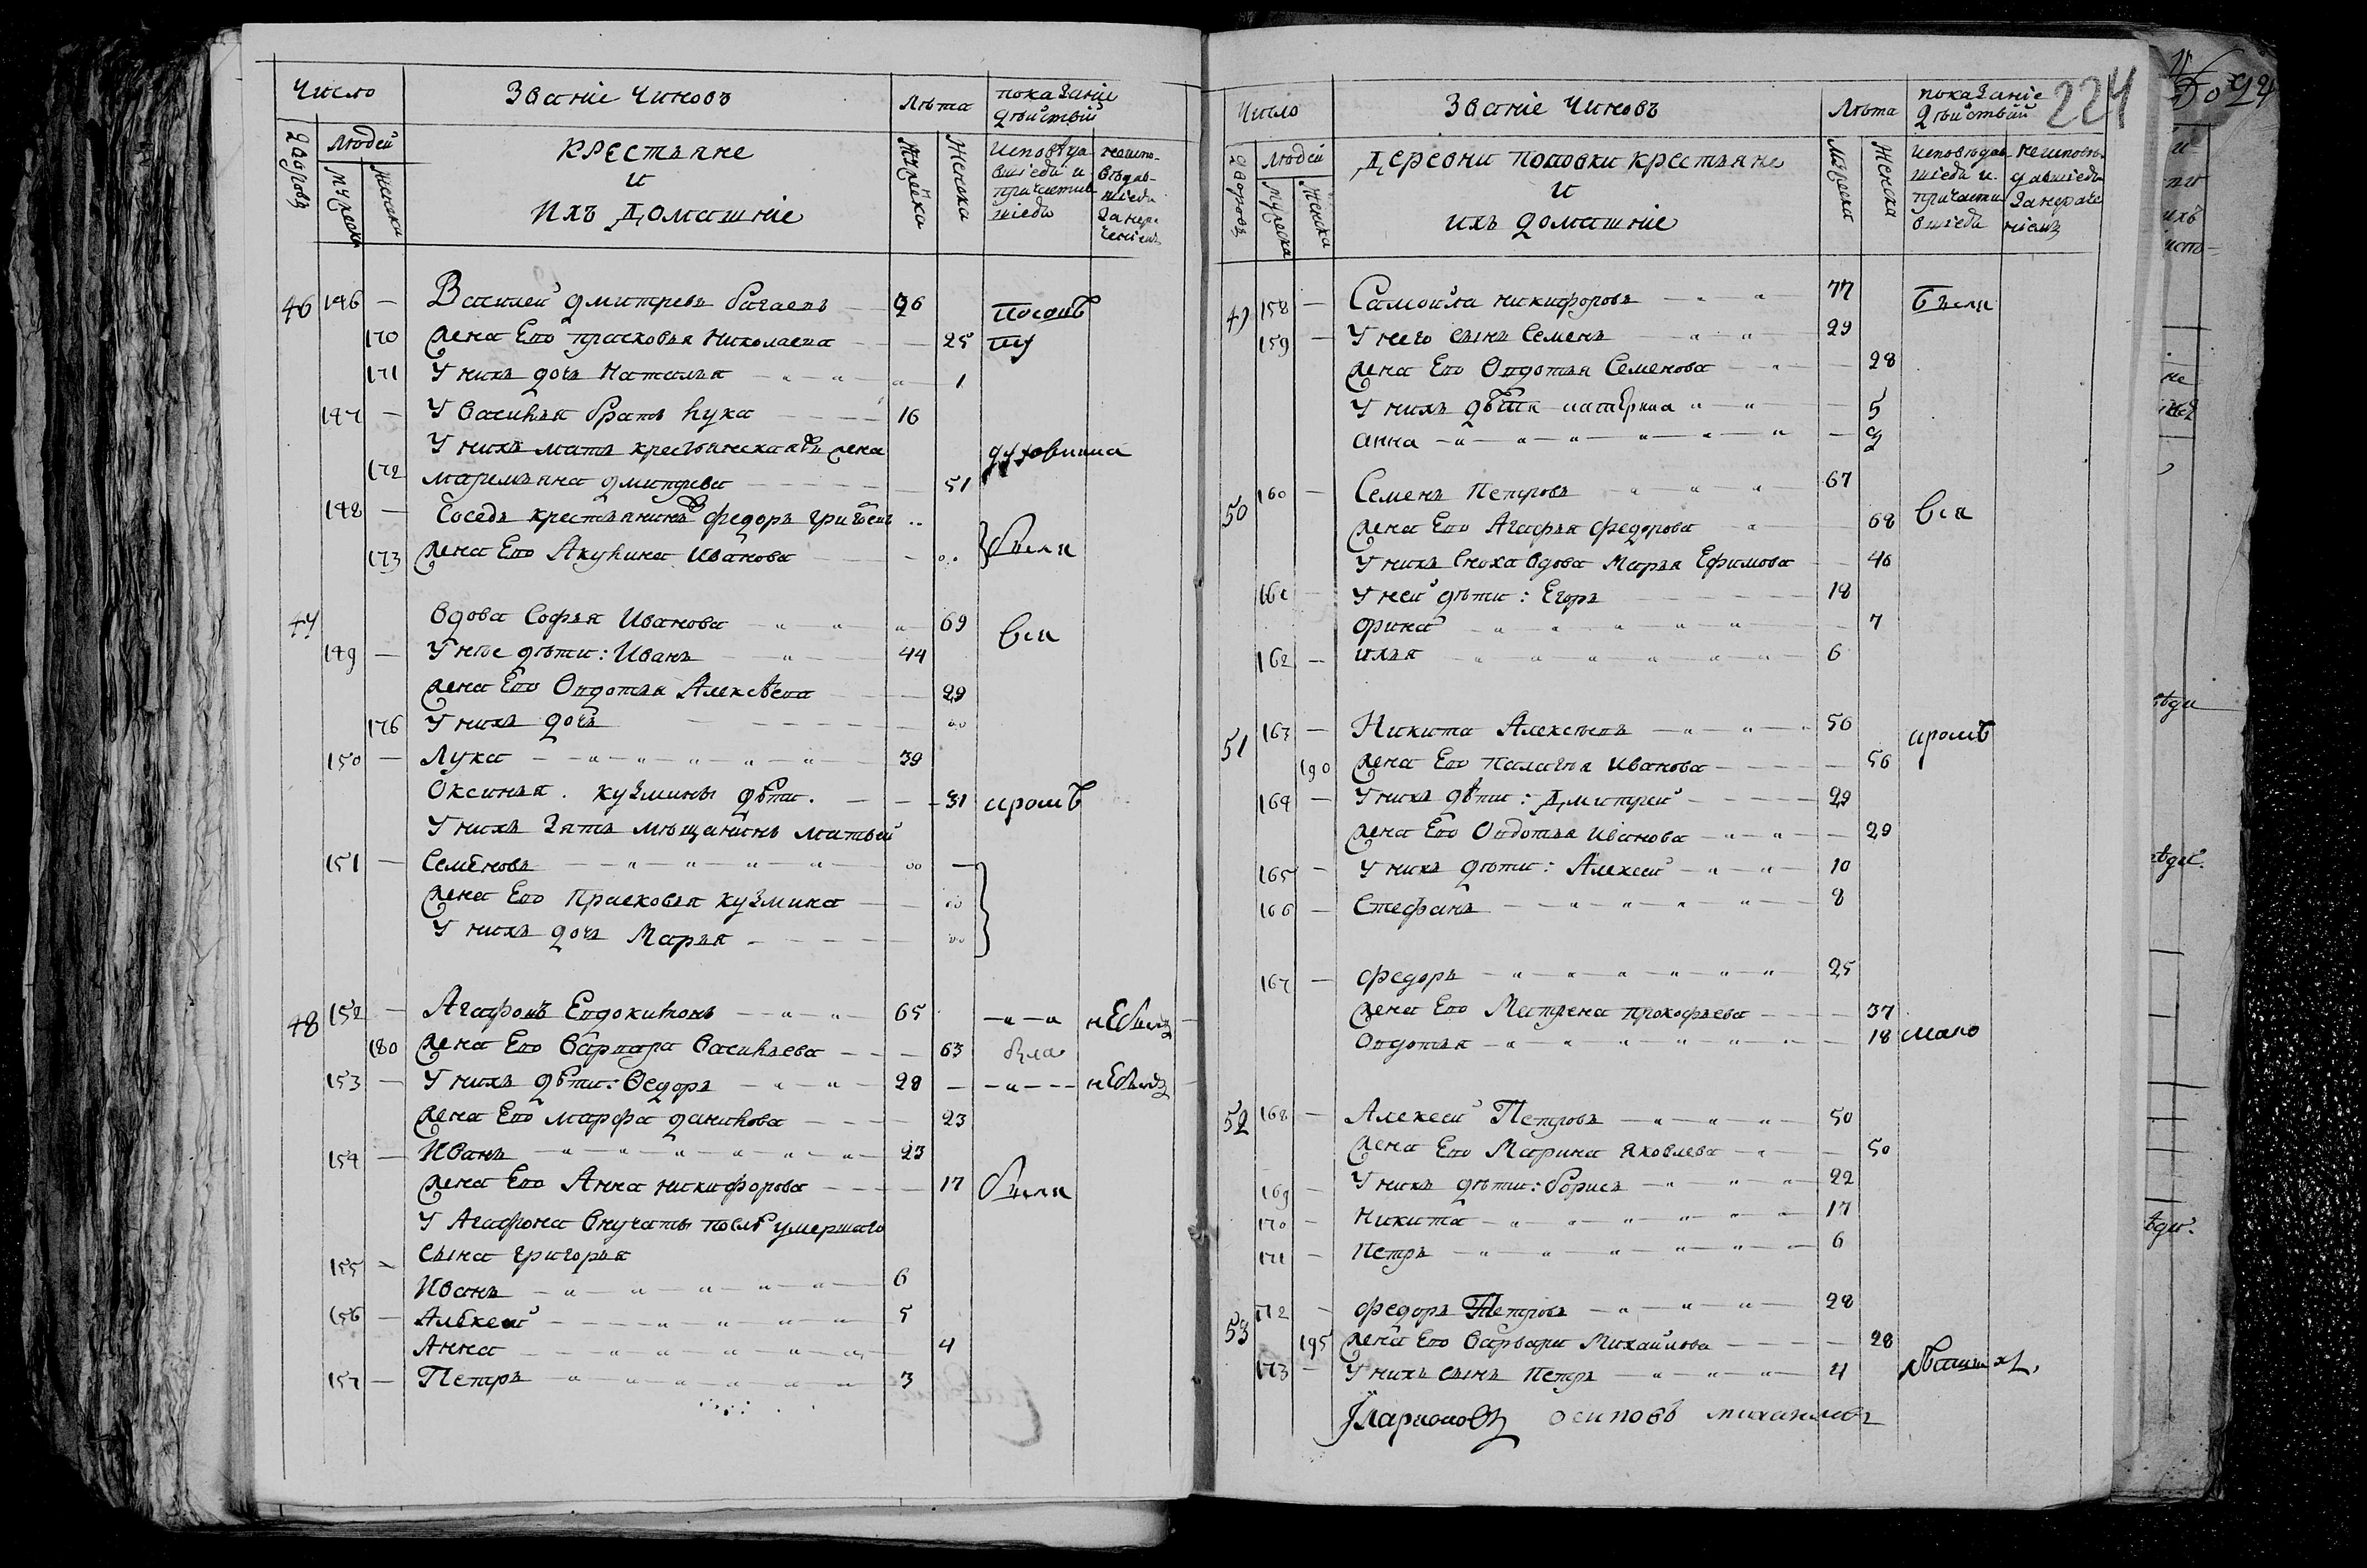 Число Званіе Чиновъ Лѣта показаніе дѣйствій
дворовъ Людей мужеска женска крестьяне и ихъ домашніе мужеска женска исповѣдавшіеся и причастившіеся неисповѣдавшіеся за нерачениемъ
46 146 — Василей Дмитревъ 26
170 жена Его Прасковья Николаева — — 25
171 У нихъ дочь Наталья — 1
147 — У Василья братъ Лука — 16
У нихъ мать крестьянская жена
172 Маремьяна Дмитрева — 51
148 — Сосѣдъ крестьянинъ Федоръ
173 жена Его Акулина Иванова — были
47 Вдова Софья Иванова — 69 вси
149 — У нее дѣти: Иванъ — 44
жена Его Овдотья Алексѣева — 29
176 У нихъ дочь —
150 — Лука — 39
Оксинья. Кузмины дѣти. — 31 кромѣ
У нихъ зять мѣщанинъ Матвей
151 — Семеновъ —
жена Его Прасковья Кузмина —
У нихъ дочь Марья —
48 152 — Агафонъ Евдокимовъ — 65 — не былъ
180 жена Его Варвара Васильева — 63 была
153 — У нихъ дѣти: Федоръ — 28 — не былъ
жена Его Марфа Данилова — 23
154 — Иванъ — 23
жена Его Анна Никифорова — 17 были
У Агафона внучаты послѣ умершаго
155 — сына Григорья
Иванъ — 6
156 — Алексей — 5
Анна — 4
157 — Петръ — 3
224
Число Званіе Чиновъ Лѣта показаніе дѣйствій
дворовъ Людей мужеска женска Деревни Поповки крестьяне и ихъ домашніе мужеска женска исповѣдавшіеся и причастившіеся неисповѣдавшіеся за нераченіемъ
49 158 — Самойла Никифоровъ — 77 были
159 — У него сынъ Семенъ — 29
жена Его Овдотья Семенова — 28
У нихъ дѣти Катерина — 5
Анна —
50 160 — Семенъ Петровъ — 67 вси
жена Его Агафья Федорова — 68
У нихъ сноха вдова Марья Ефимова — 40
161 — У ней дѣти: Егоръ — 18
7
162 — Илья — 6
51 163 — Никита Алексѣевъ — 56 кромѣ
190 жена Его Палагья Иванова — 56
164 — У нихъ дѣти: Дмитрей — 29
жена Его Овдотья Иванова — 29
165 — У нихъ дѣти: Алексей — 10
166 — Стефанъ — 8
167 — Федоръ — 25
жена Его Матрена Прокофьева — 37
Овдотья — 18 мало
52 168 — Алексей Петровъ — 50
жена Его Марина Яковлева — 50
169 — У нихъ дѣти: Борисъ — 22
170 — Никита — 17
171 — Петръ — 6
53 172 — Федоръ Петровъ — 28
195 жена Его Варвара Михайлова — 28
173 — У нихъ сынъ Петръ — 4
Иларионовъ Осиповъ